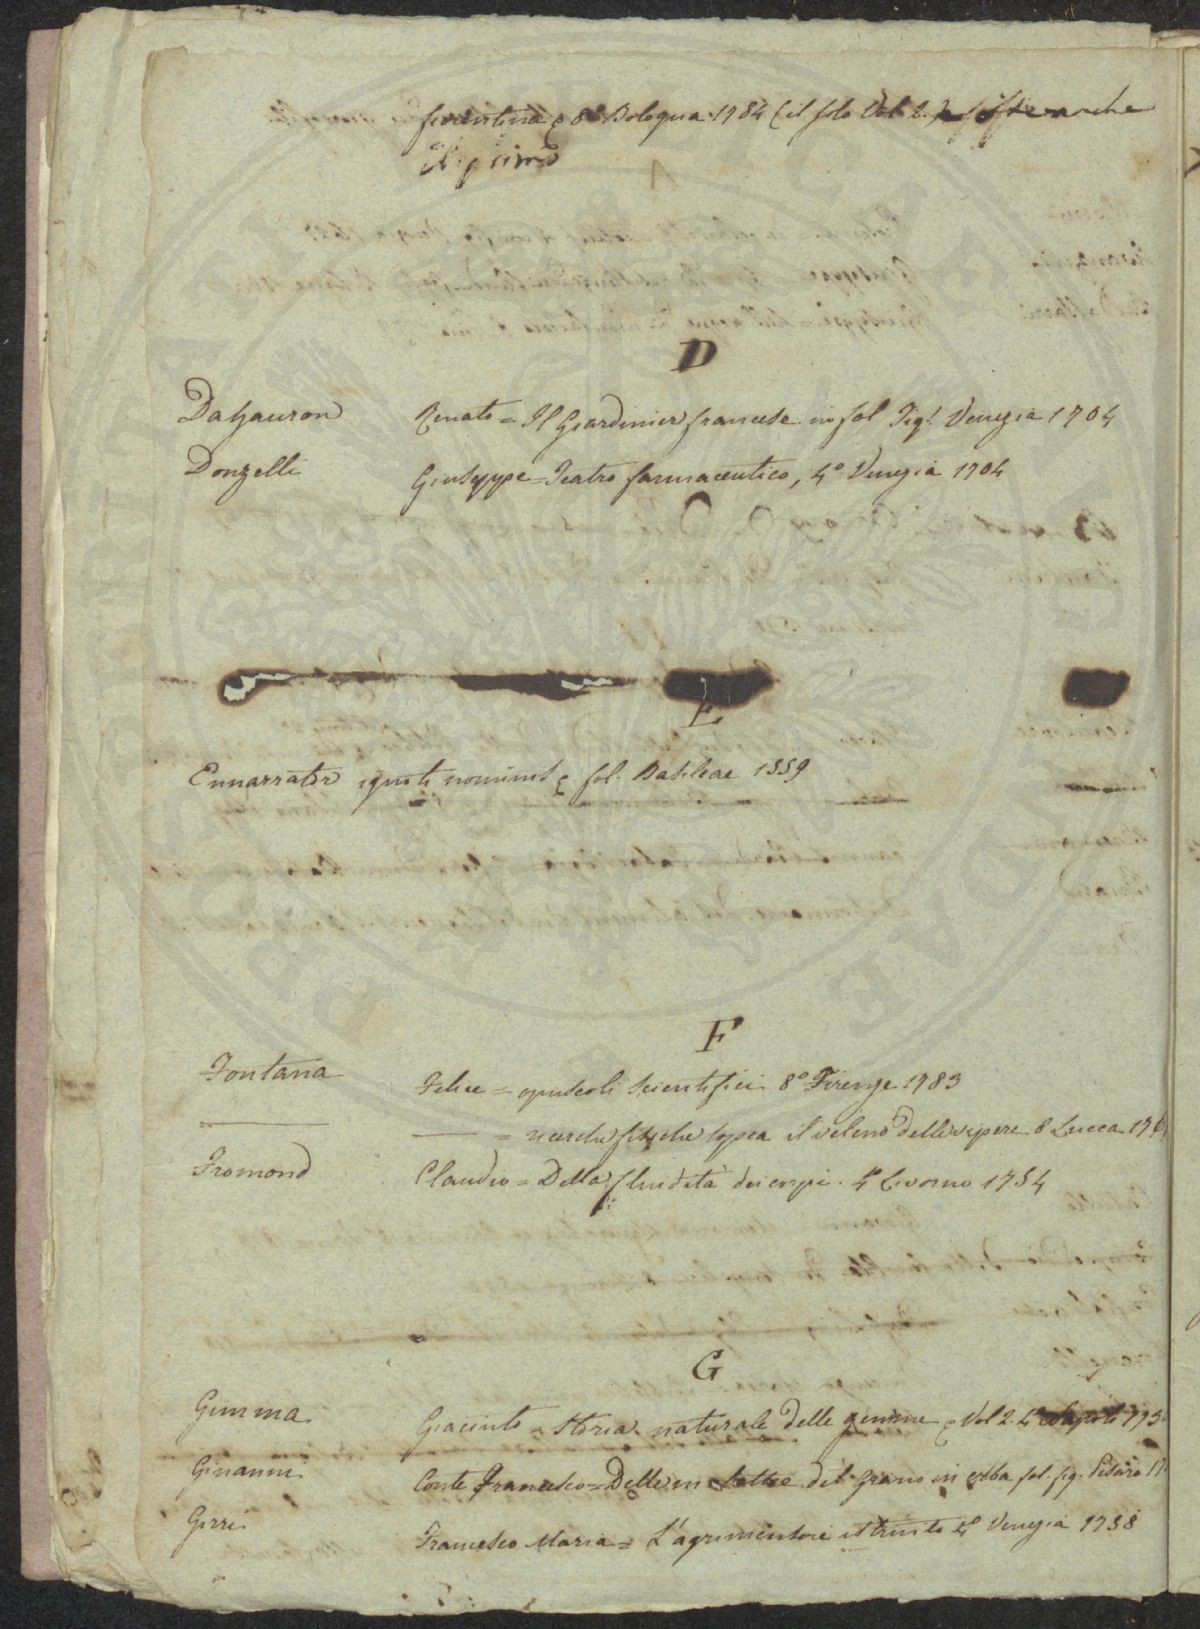 fiorentina 8º Bologna 1784 (il solo Vol. 2.) esiste anche
il primo
D
Dahauron Renato = Il Giardinier francese in fol Fig! Venezia 1704
Donzelli Giuseppe = Teatro farmaceutico, 4º Venezia 1704
E
Ennarrator ignoti nominis fol. Basileae 1559
F
Fontana Felice = opuscoli scientifici 8º Firenze 1783
— = ricerche fisiche sopra il veleno delle vipere 8 Lucca
Fromond Claudio = Della fluidità dei corpi. 4º Livorno 1754
G
Gimma Giacinto = Storia naturale delle gemme Vol 2. 4º Napoli
Ginanni Conte Francesco = Delle malattie del grano in erba fol. fig. Pesaro
Girri Francesco Maria = L'agrimensore istruito 4º Venezia 1758